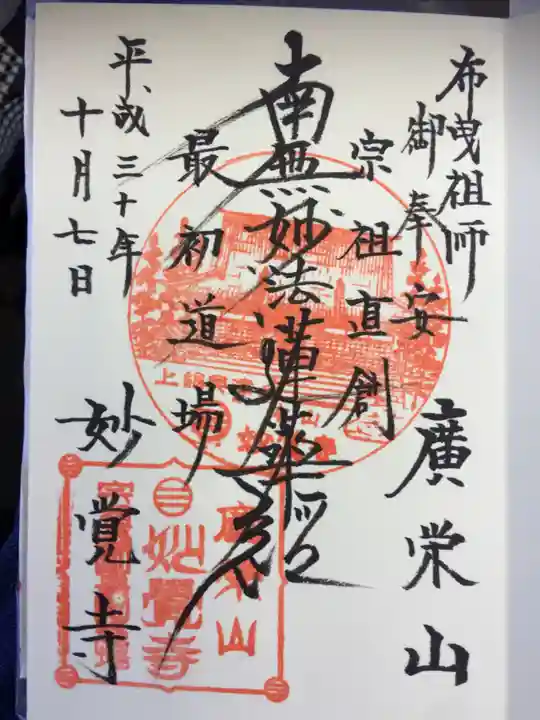 布曳祖師
御奉安
廣栄山
宗祖直創
南無妙法蓮華経
最初道場
妙覚寺
平成三十年
十月七日
妙覺寺